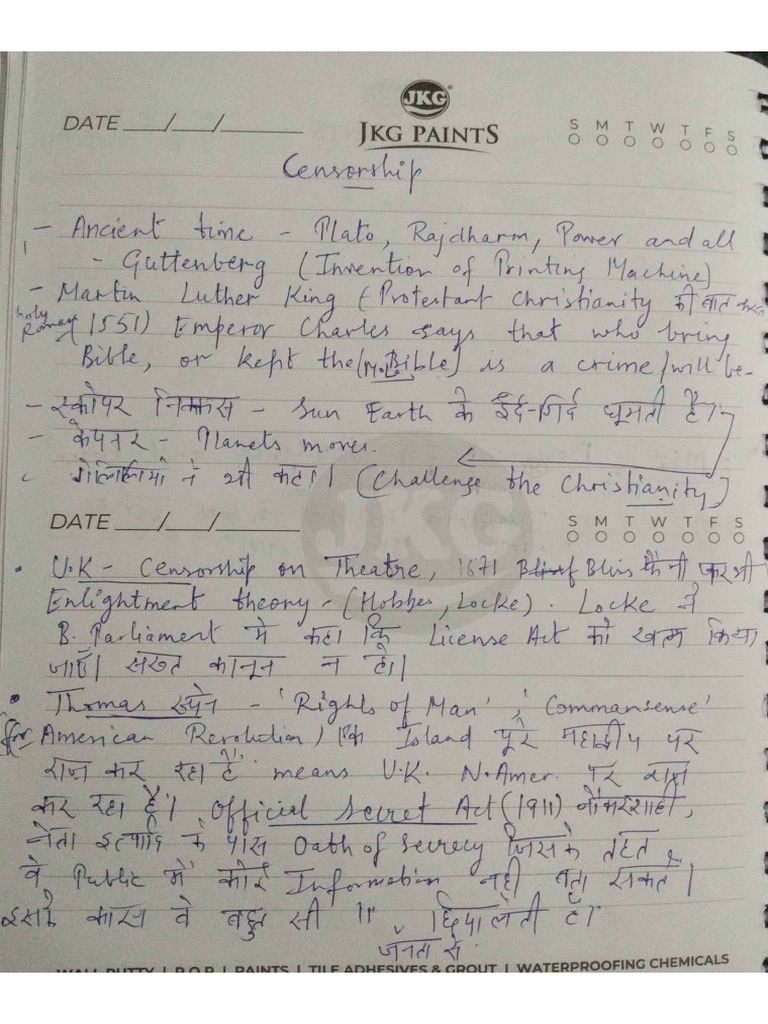 JKG
DATE ___/___/______ JKG PAINTS S M T W T F S
Censorship
- Ancient time - Plato, Rajdharm, Power and all
- Guttenberg (Invention of Printing Machine)
- Martin Luther King (Protestant Christianity की बात
Holy Roman (1551) Emperor Charles says that who bring
Bible, or kept the Bible is a crime/will be-
- निकलस - Sun Earth के ईर्द-गिर्द घूमती है।
- केपलर - Planets moves.
गेलिलियो ने भी कहा। (Challenge the Christianity)
DATE ___/___/______ S M T W T F S
• U.K - Censorship on Theatre, 1671
Enlightment theory - (Hobbes, Locke). Locke ने
B. Parliament में कहा कि License Act को खत्म किया
जाएँ। सख्त कानून न हो।
• Thomas पेन - 'Rights of Man', 'Commansense'
(for American Revolution) एक Island पूरे महाद्वीप पर
राज कर रहा है" means U.K. N.Amer. पर राज
कर रहा है। Official Secret Act (1911) नौकरशाही,
नेता इत्यादि के पास Oath of Secrecy जिसके तहत
वे Public में कोई Information नहीं बता सकते।
इसके कारण वे बहुत सी " छिपा लेती है।
जनता से
WALL PUTTY | P.O.P | PAINTS | TILE ADHESIVES & GROUT | WATERPROOFING CHEMICALS